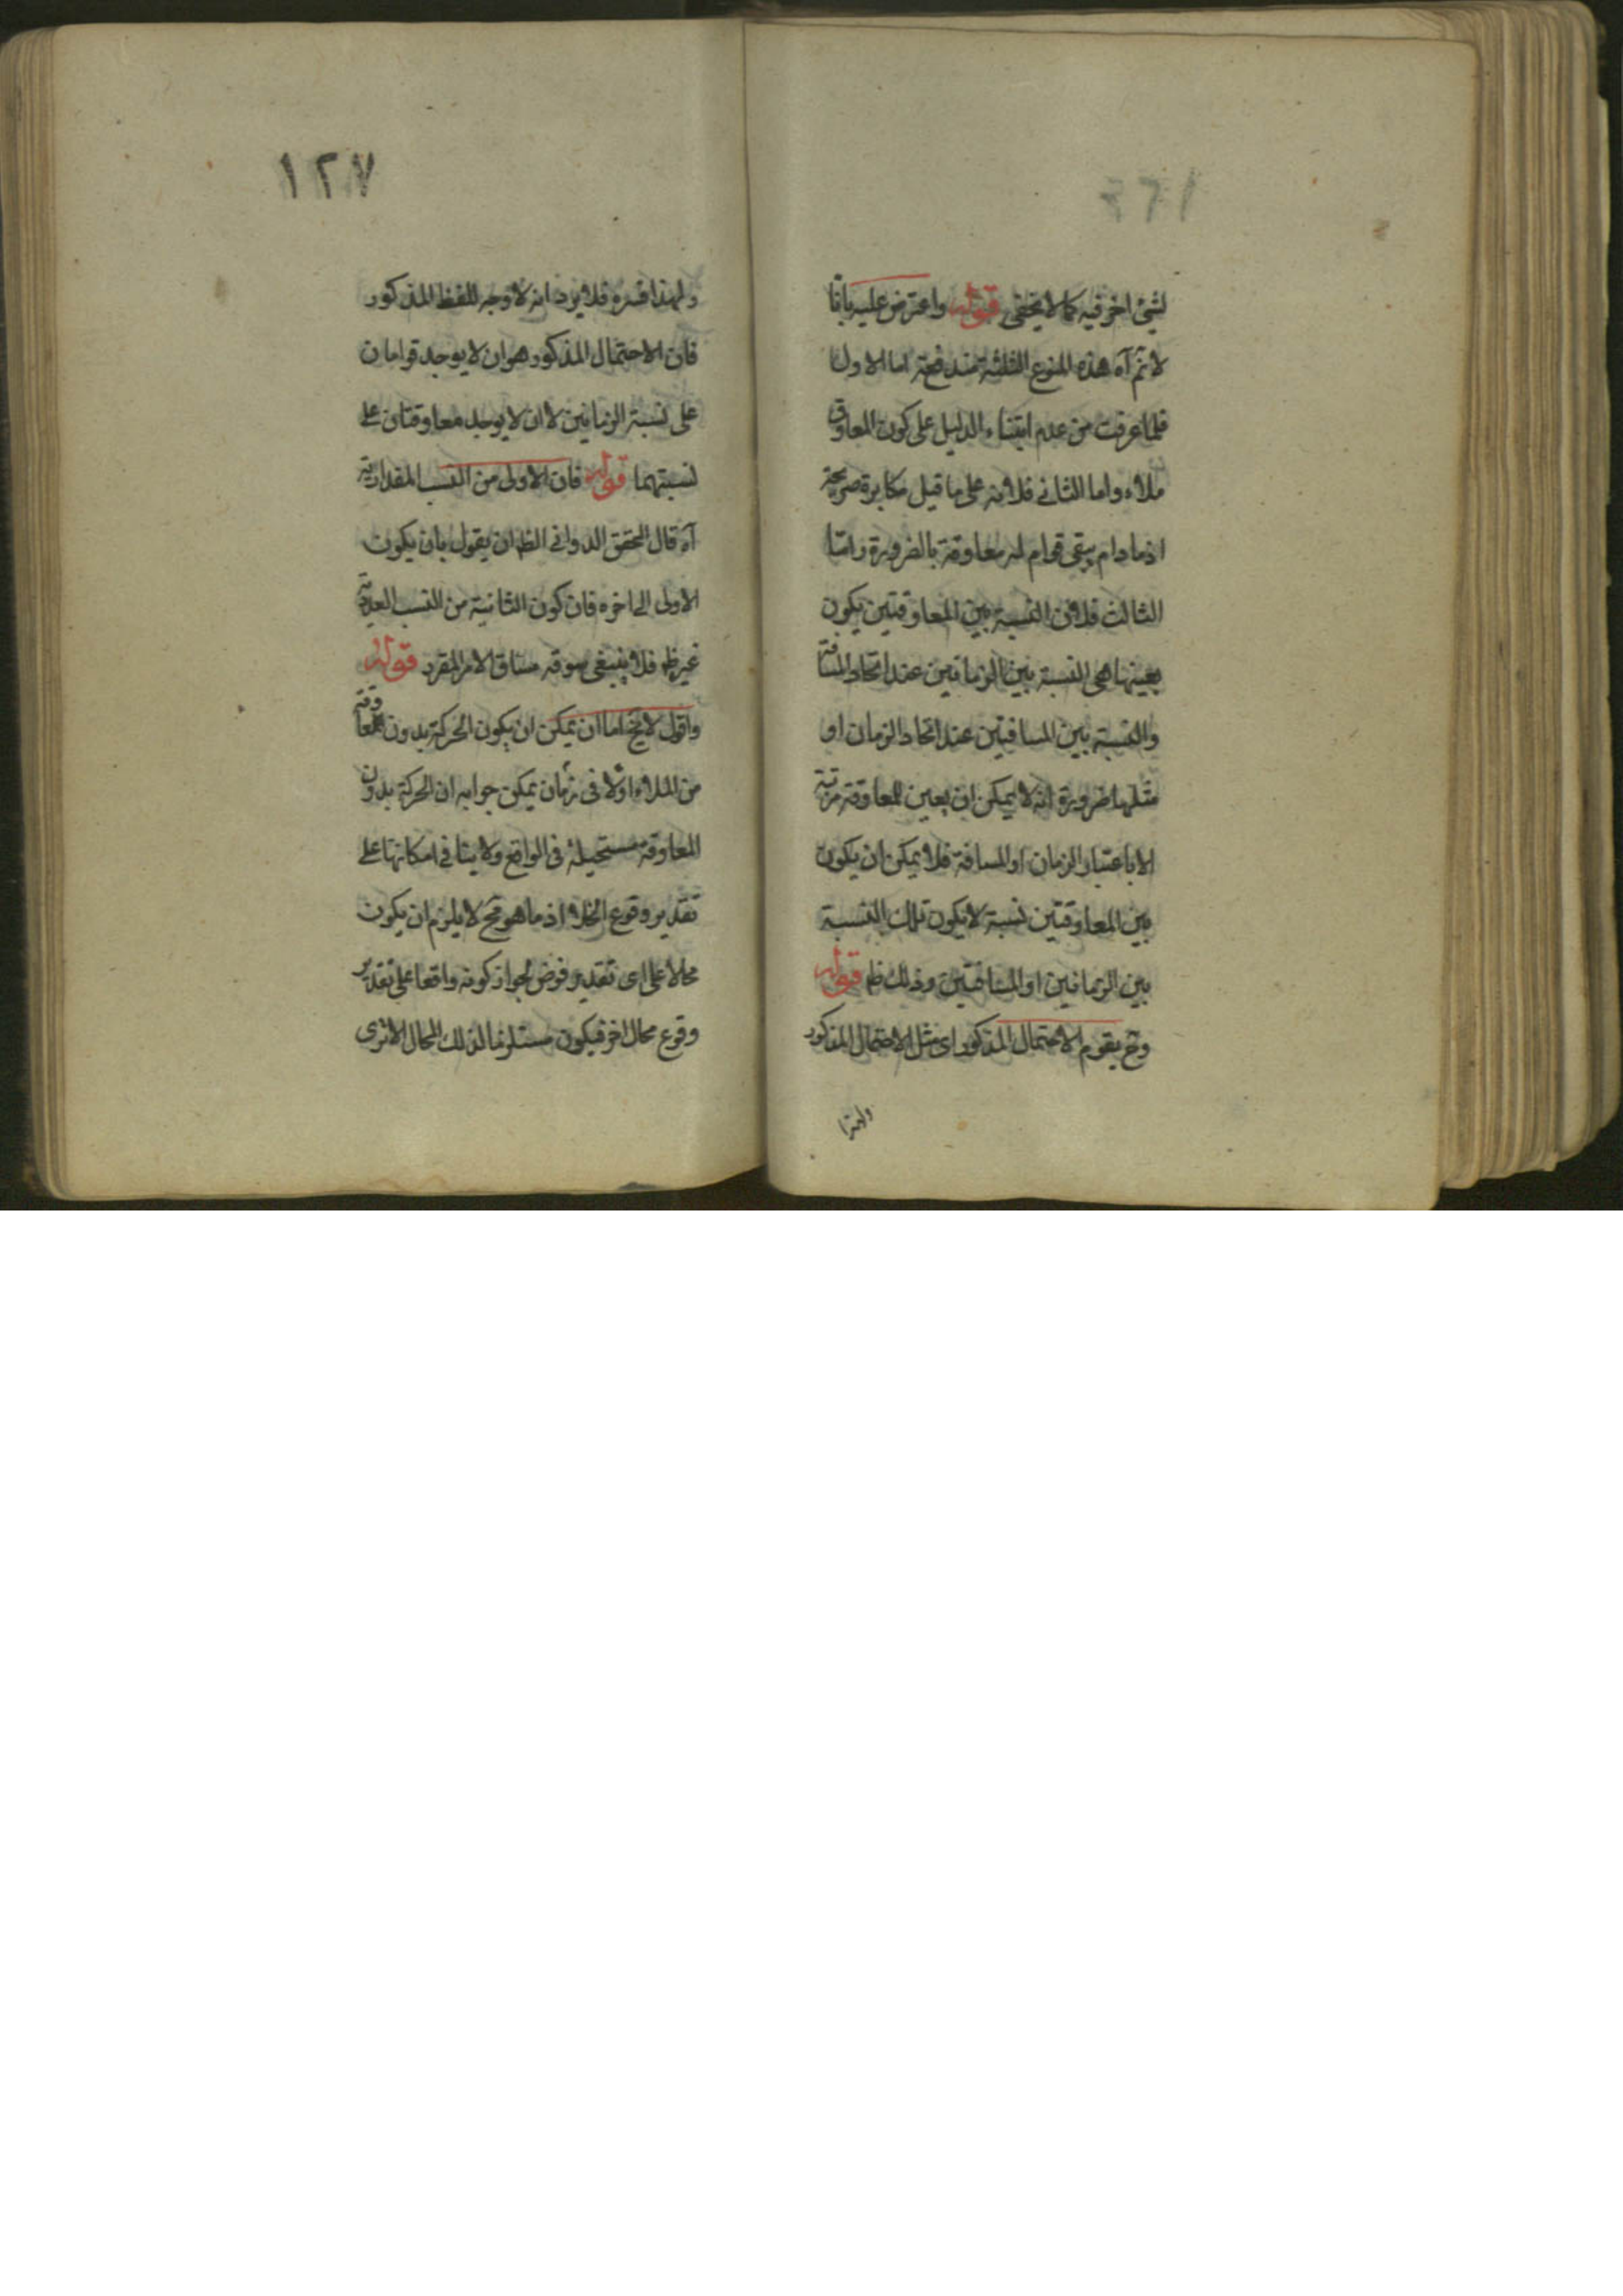 لشئ اخر فيه كما لا يخفى قوله واعترض عليه بانا
لانم آه هذه المنوع الثلثة مندفعة اما الاول
فلما عرفت من عدم ابتناء الدليل على كون المعاوق
ملاء واما الثاني فلانه على ما قيل مكابرة صريحة
اذ ما دام يبقى قوام له معاوقة بالضرورة واما
الثالث فلان النسبة بين المعاوقتين يكون
بعينها هى النسبة بين الزمانين عند اتحاد المسافة
والنسبة بين المسافتين عند اتحاد الزمان او
مثلها ضرورة انه لا يمكن ان يعين للمعاوقة مرتبة
الا باعتبار الزمان او المسافة فلا يمكن ان يكون
بين المعاوقتين نسبة لا يكون تلك النسبة
بين الزمانين او المسافتين وذلك ظ قوله
وح يقوم الاحتمال المذكور اى مثل الاحتمال المذكور
ولهذا
١٢٧
ولهذا فسره فلا يرد انه لا وجه للفظ المذكور
فان الاحتمال المذكور هو ان لا يوجد قوامان
على نسبة الزمانين لا ان لا يوجد معاوقتان على
نسبتهما قوله فان الاولى من النسب المقدارية
آه قال المحقق الدواني الظ ان يقول بان يكون
الاولى الى اخره فان كون الثانية من النسب العددية
غير ظ فلا ينبغى سوقه مساق الامر المقرر قوله
واقول لا يخ اما ان يمكن ان يكون الحركة بدون المعاوقة
من الملاء اولا فى زمان يمكن جوابه ان الحركة بدون
المعاوقة مستحيلة فى الواقع ولا ينافى امكانها على
تقدير وقوع الخلاء اذ ما هو مح لا يلزم ان يكون
محالا على اى تقدير فرض لجواز كونه واقعا على تقدير
وقوع محال اخر فيكون مستلزما لذلك المحال الا ترى